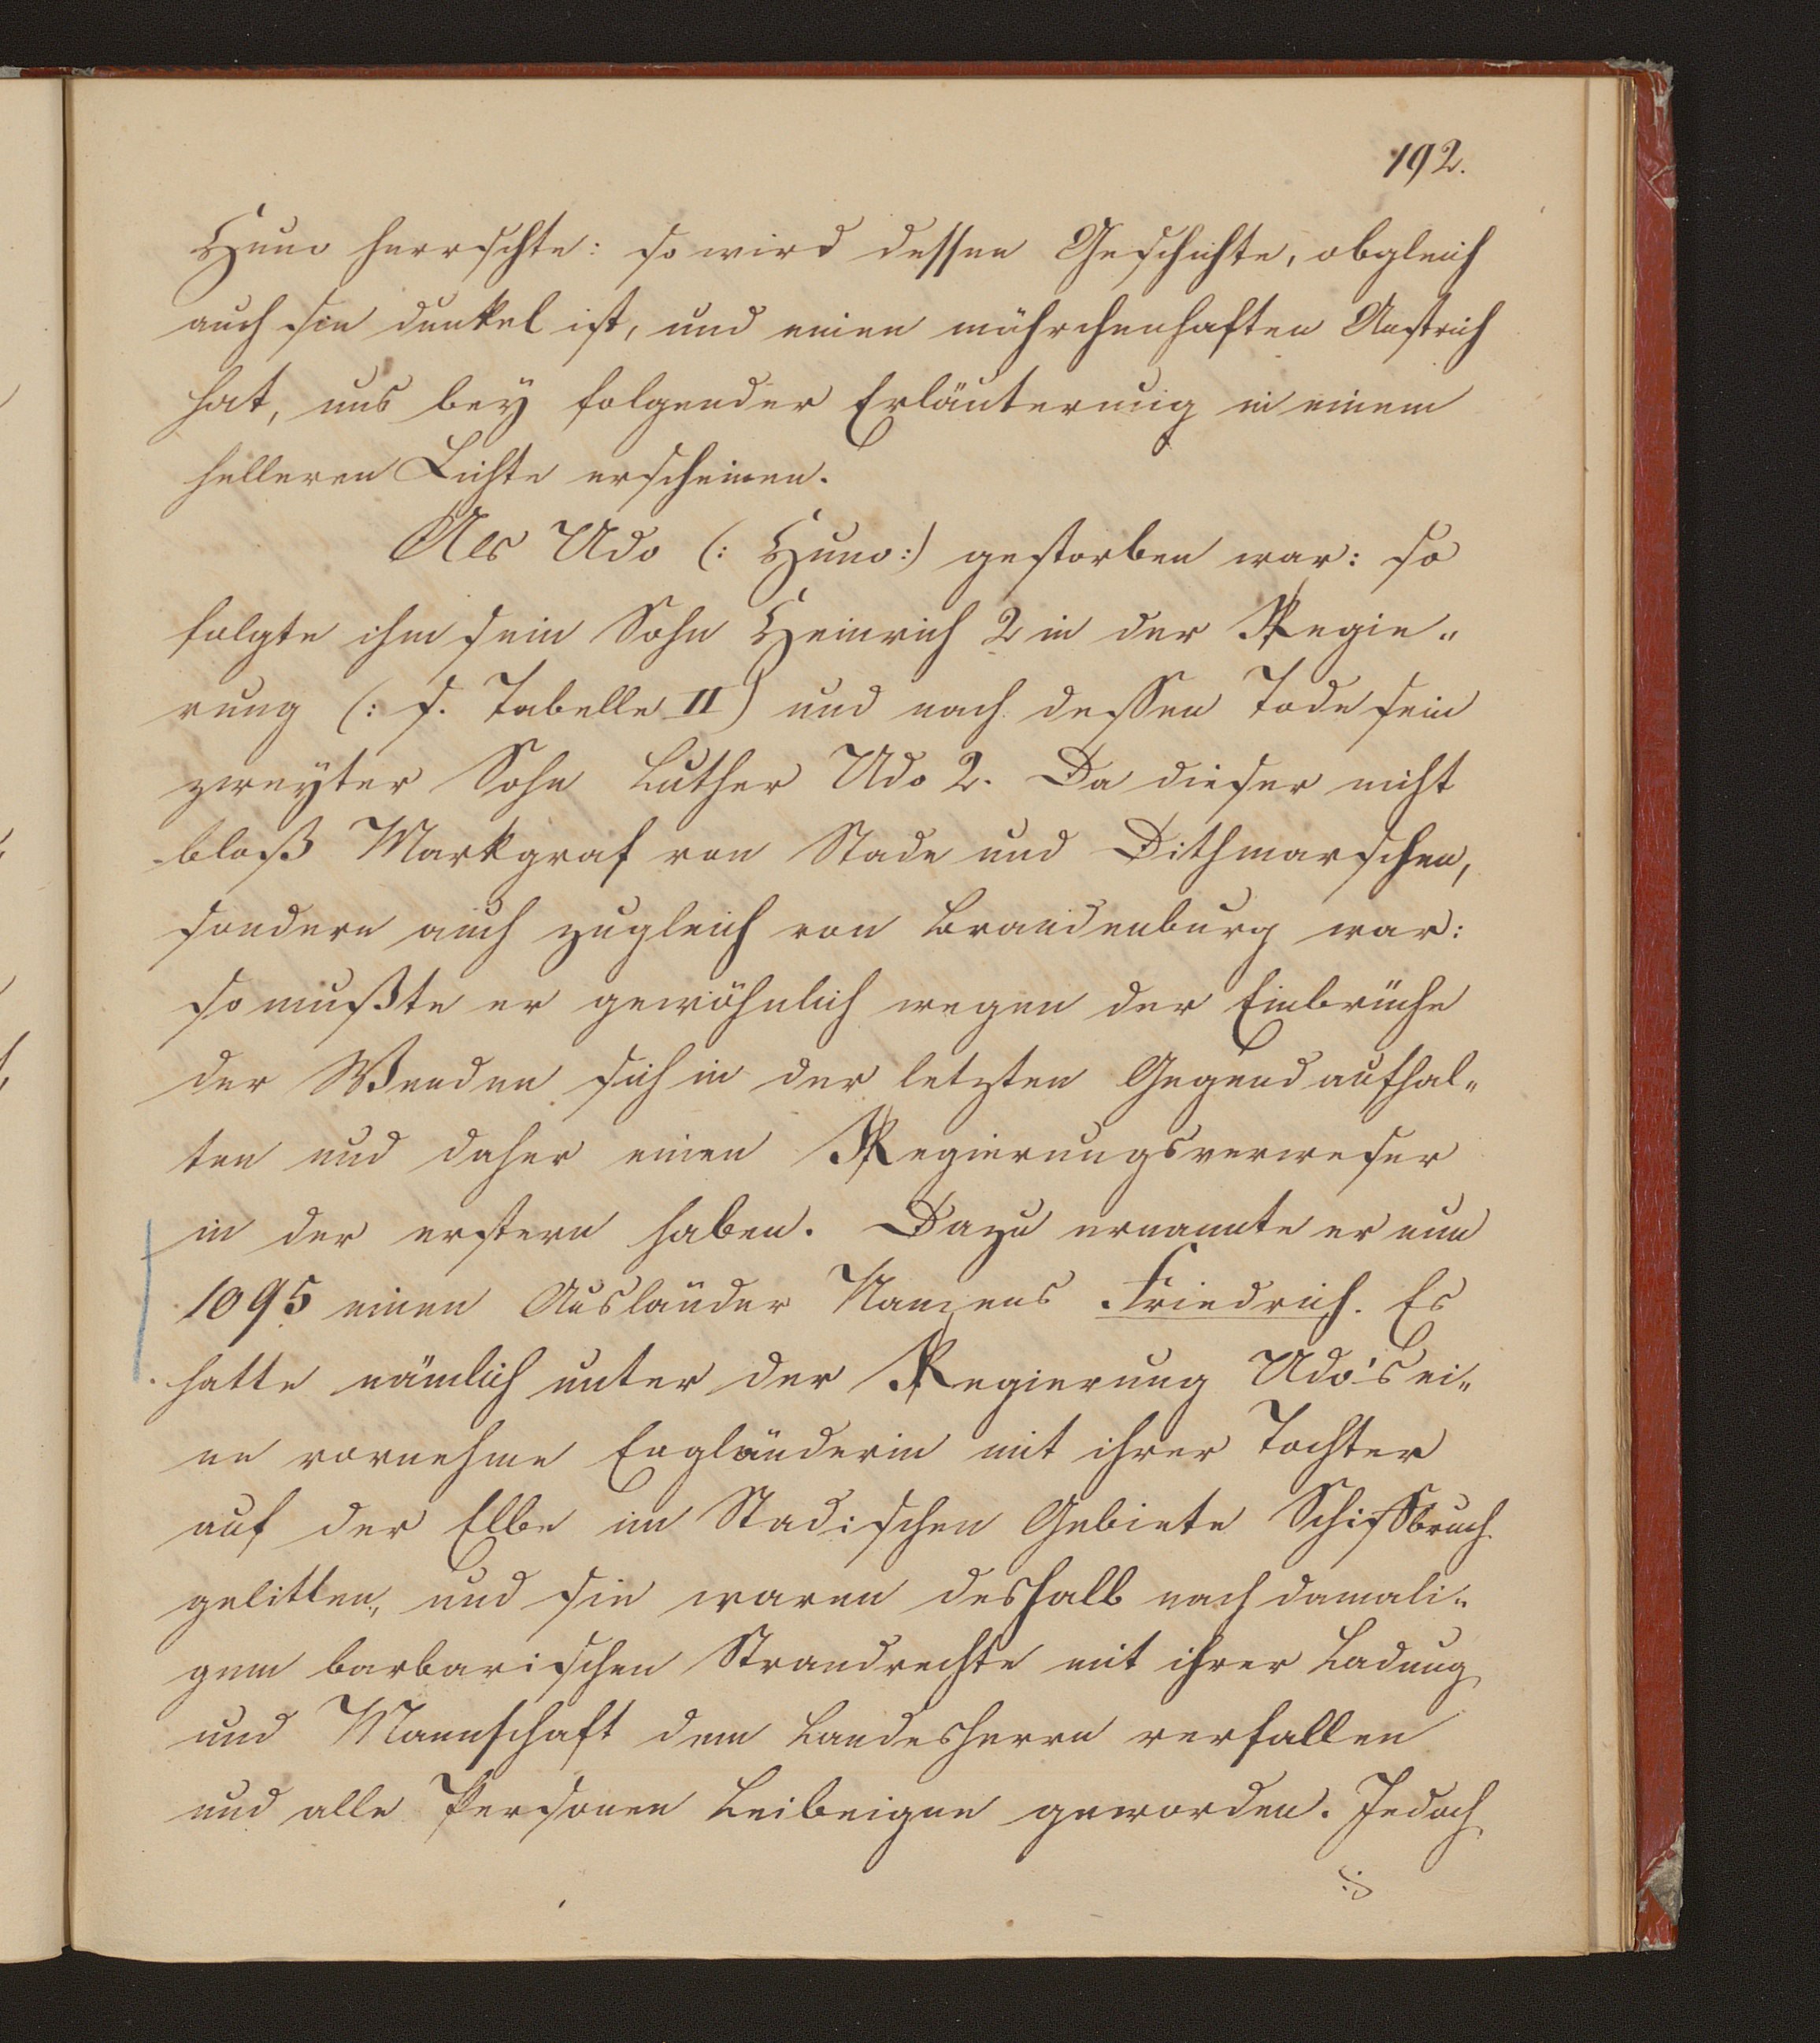 192.
Huno herrschte: so wird dessen Geschichte, obgleich
auch sie dunkel ist, und einen mährchenhaften Anstrich
hat, uns bey folgender Erläuterung in einem
helleren Lichte erscheinen.
Als Udo (: Huno:) gestorben war: so
folgte ihm sein Sohn Heinrich 2 in der Regie„
rung (: s. Tabelle II) und nach dessen Tode sein
zweyter Sohn Luther Udo 2. Da dieser nicht
bloß Markgraf von Stade und Dithmarschen,
sondern auch zugleich von Brandenburg war:
so mußte er gewöhnlich wegen der Einbrüche
der Wenden sich in der letzten Gegend aufhal„
ten und daher einen Regierungsverweser
in der erstern haben. Dazu ernannte er nun
1095 einen Ausländer Namens Friedrich. Es
hatte nämlich unter der Regierung Udo's ei„
ne vornehme Engländerin mit ihrer Tochter
auf der Elbe im Stadischen Gebiete Schiffbruch
gelitten, und sie waren deshalb nach damali„
gem barbarischen Strandrechte mit ihrer Ladung
und Mannschaft dem Landesherrn verfallen
und alle Personen Leibeigne geworden. Jedoch